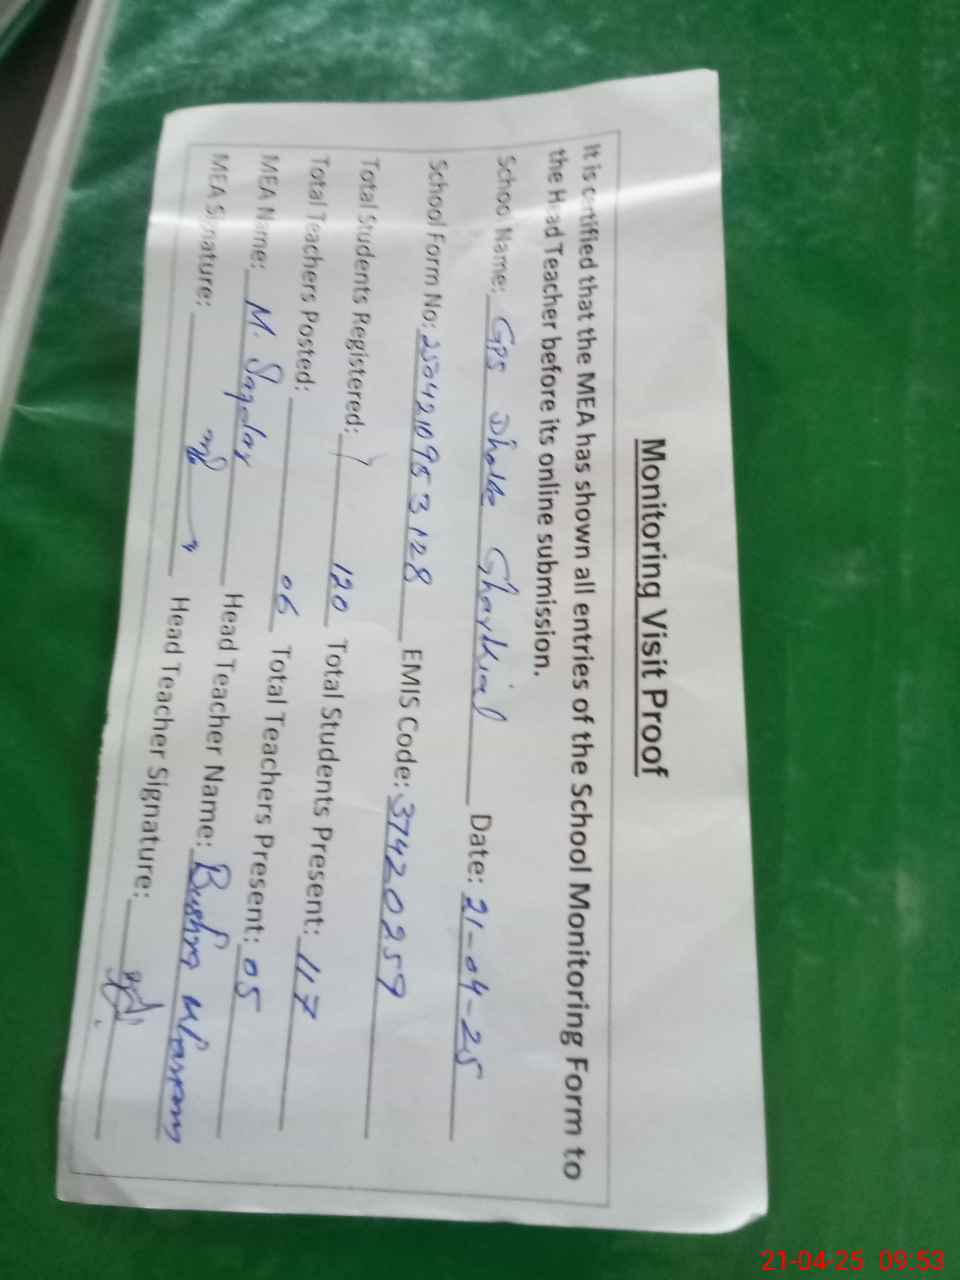 Monitoring Visit Proof
It is certified that the MEA has shown all entries of the School Monitoring Form to
the Head Teacher before its online submission.
School Name: GPS Dhoke Date: 21-04-25
School Form No: 2504210953128 EMIS Code: 37420259
Total Students Registered: 120 Total Students Present: 117
Total Teachers Posted: 06 Total Teachers Present: 05
MEA Name: M. Head Teacher Name: Bushra
MEA Signature: Head Teacher Signature:
21-04-25 09:53